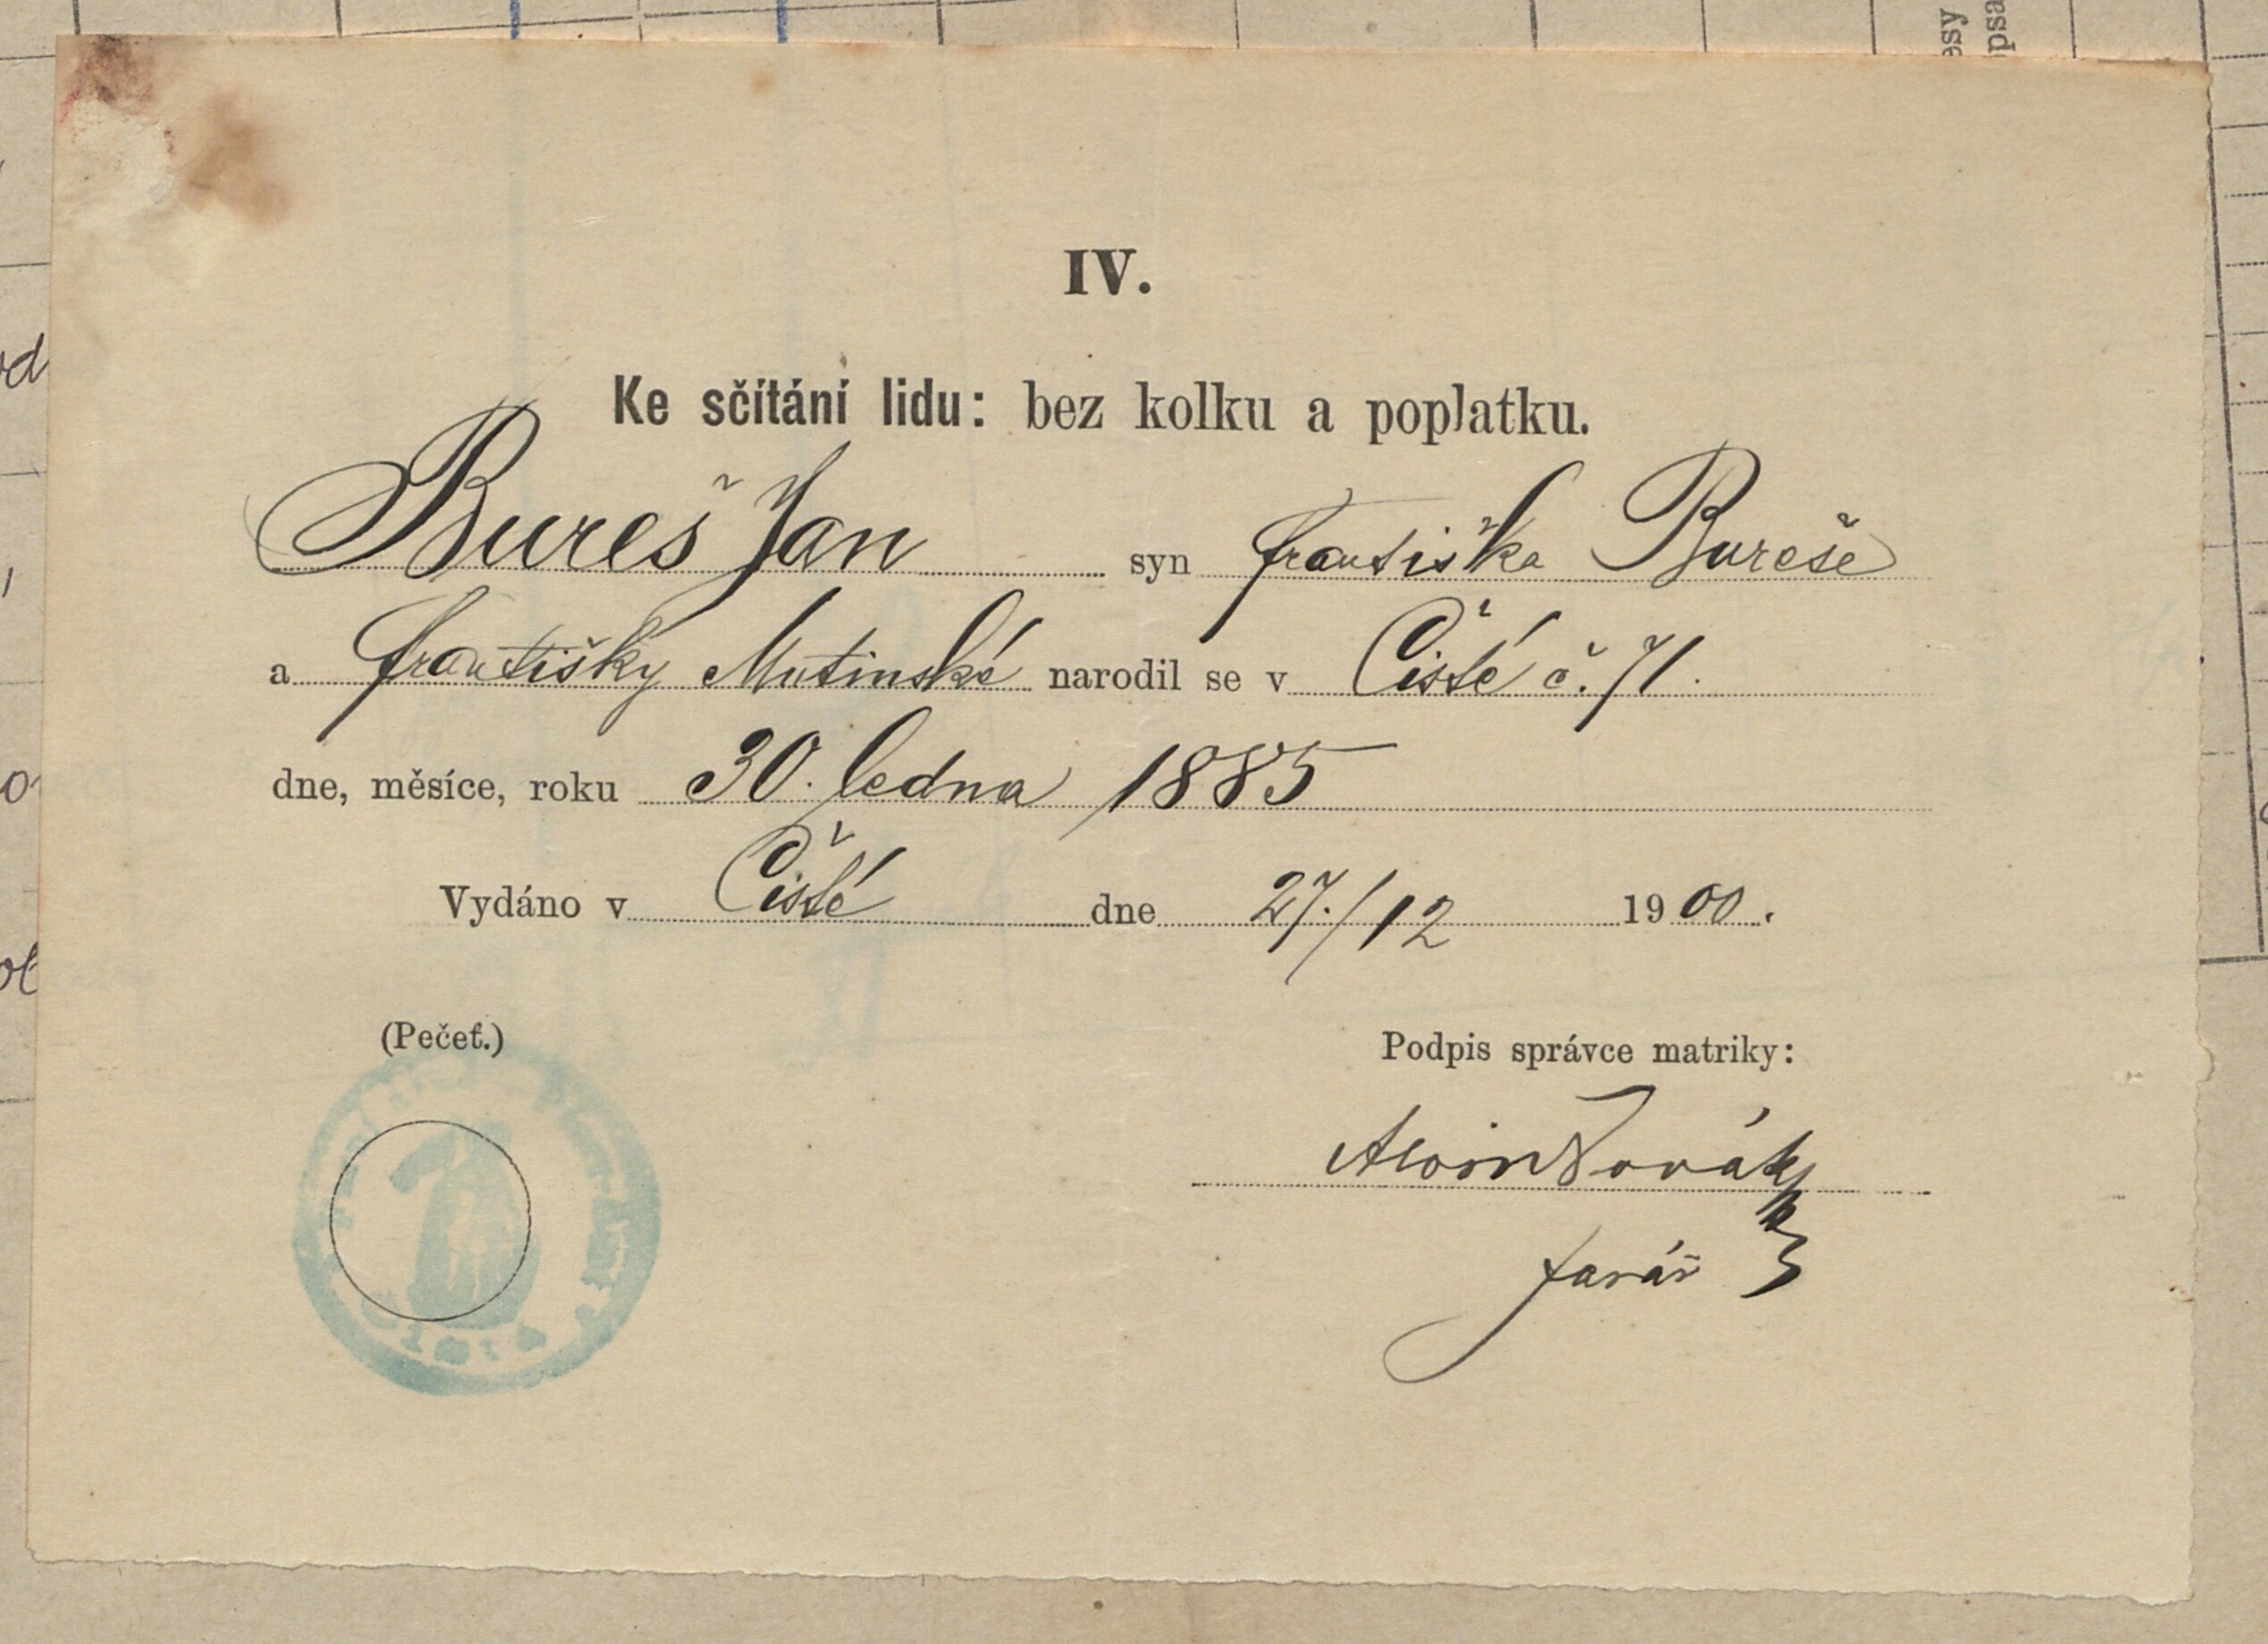 esy
opsa
IV.
Ke sčítání lidu: bez kolku a poplatku.
Bureš Jan syn Františka Bureše
a Františky Mutinské narodil se v Čisté č. 71.
dne, měsíce, roku 30. ledna 1885
Vydáno v Čisté dne 27./12 1900.
(Pečeť.)
Podpis správce matriky:
Novák
farář